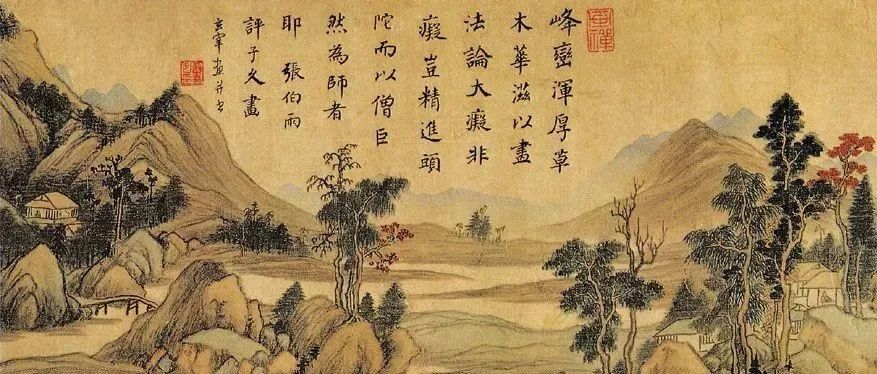 畫禪
峰巒渾厚草
木華滋以畫
法論大癡非
癡豈精進頭
陀而以僧巨
然為師者
耶 張伯雨
評子久畫
玄宰畫并書